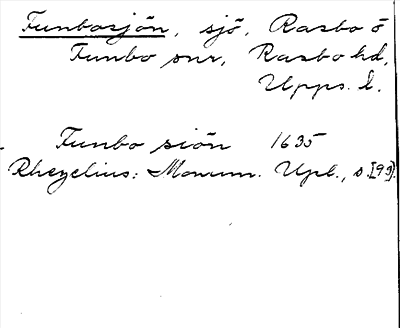 Funbosjön, sjö, Rasbo o
Funbo snr, Rasbo hd,
Upps. l.
Funbo siön 1635
Rhezelius: Monum. Upl., s. [93]